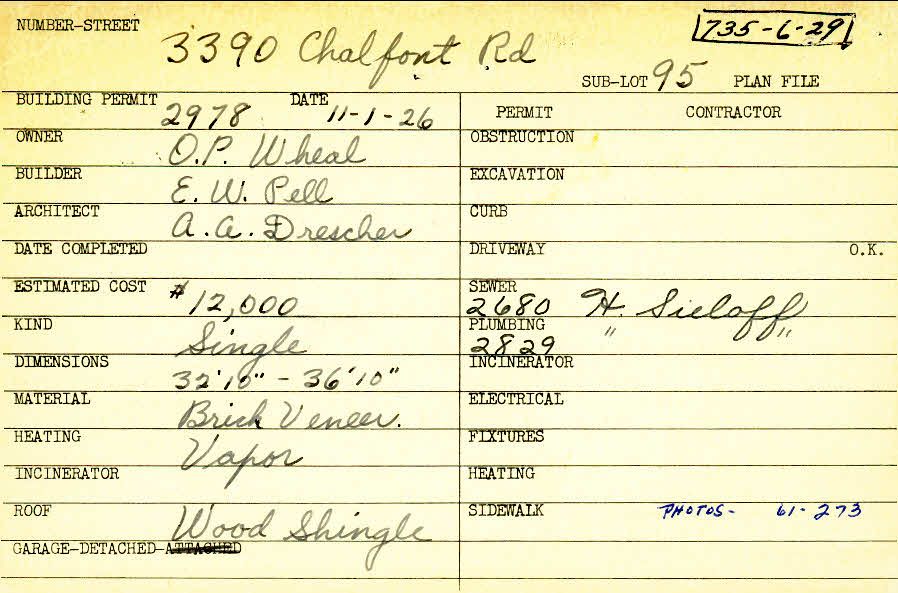 NUMBER-STREET 3390 Chalfont Rd 735-6-29
SUB-LOT 95 PLAN FILE
BUILDING PERMIT 2978 DATE 11-1-26
PERMIT CONTRACTOR
OWNER O.P. Wheal
OBSTRUCTION
BUILDER E. W. Pell
EXCAVATION
ARCHITECT A. A. Drescher
CURB
DATE COMPLETED
DRIVEWAY O.K.
ESTIMATED COST $12,000
SEWER 2680 H. Sieloff
KIND Single
PLUMBING 2829 " "
DIMENSIONS 32'10" - 36'10"
INCINERATOR
MATERIAL Brick Veneer.
ELECTRICAL
HEATING Vapor
FIXTURES
INCINERATOR
HEATING
ROOF Wood Shingle
SIDEWALK PHOTOS- 61-273
GARAGE-DETACHED-ATTACHED